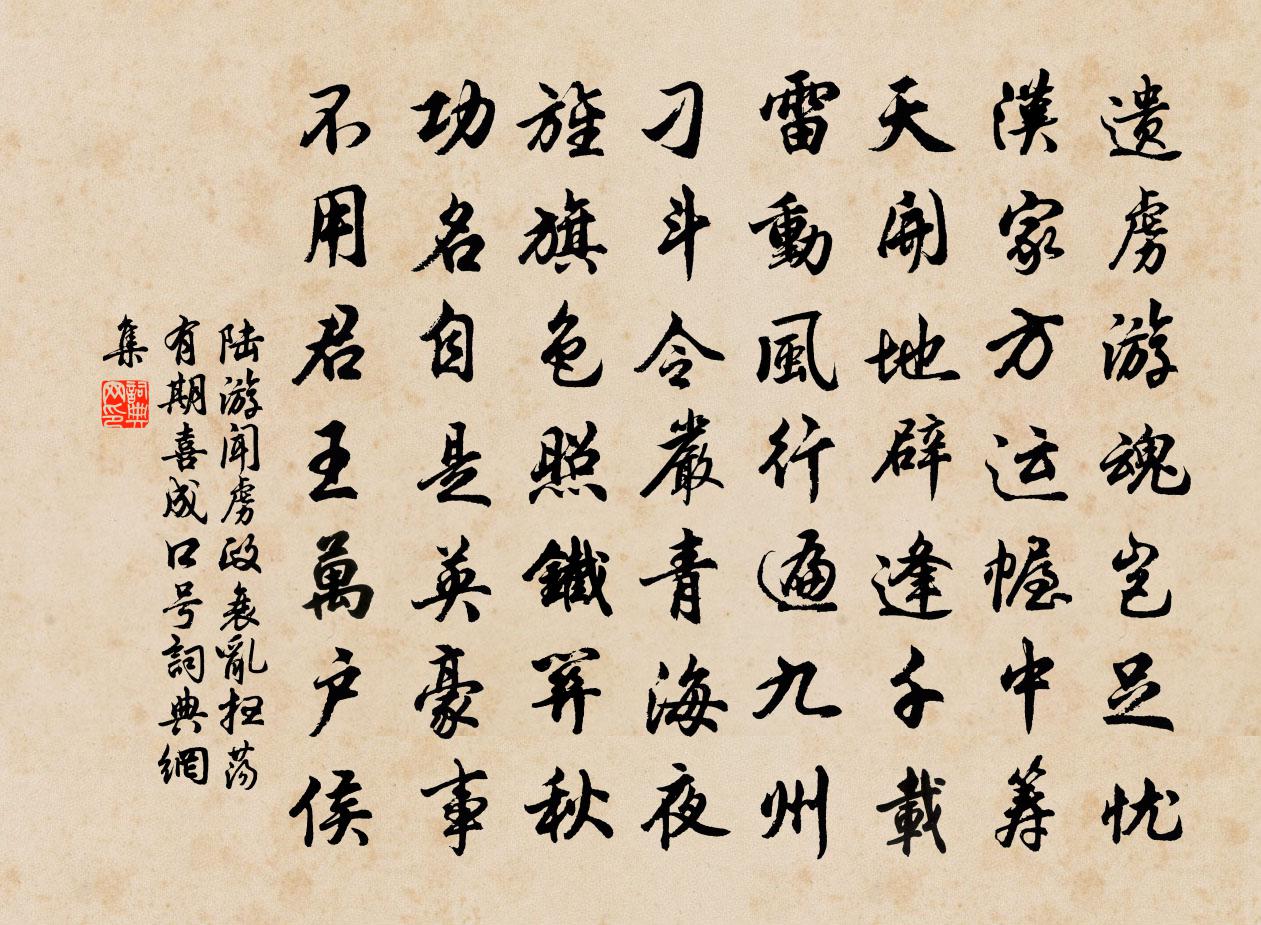 遗虏游魂岂足忧
漢家方运幄中筹
天開地辟逢千載
雷動風行遍九州
刁斗令嚴青海夜
旌旗色照鐵關秋
功名自是英豪事
不用君王萬户侯
陆游闻虏政衰亂扫荡
有期喜成口号詞典網
集
詞典網印